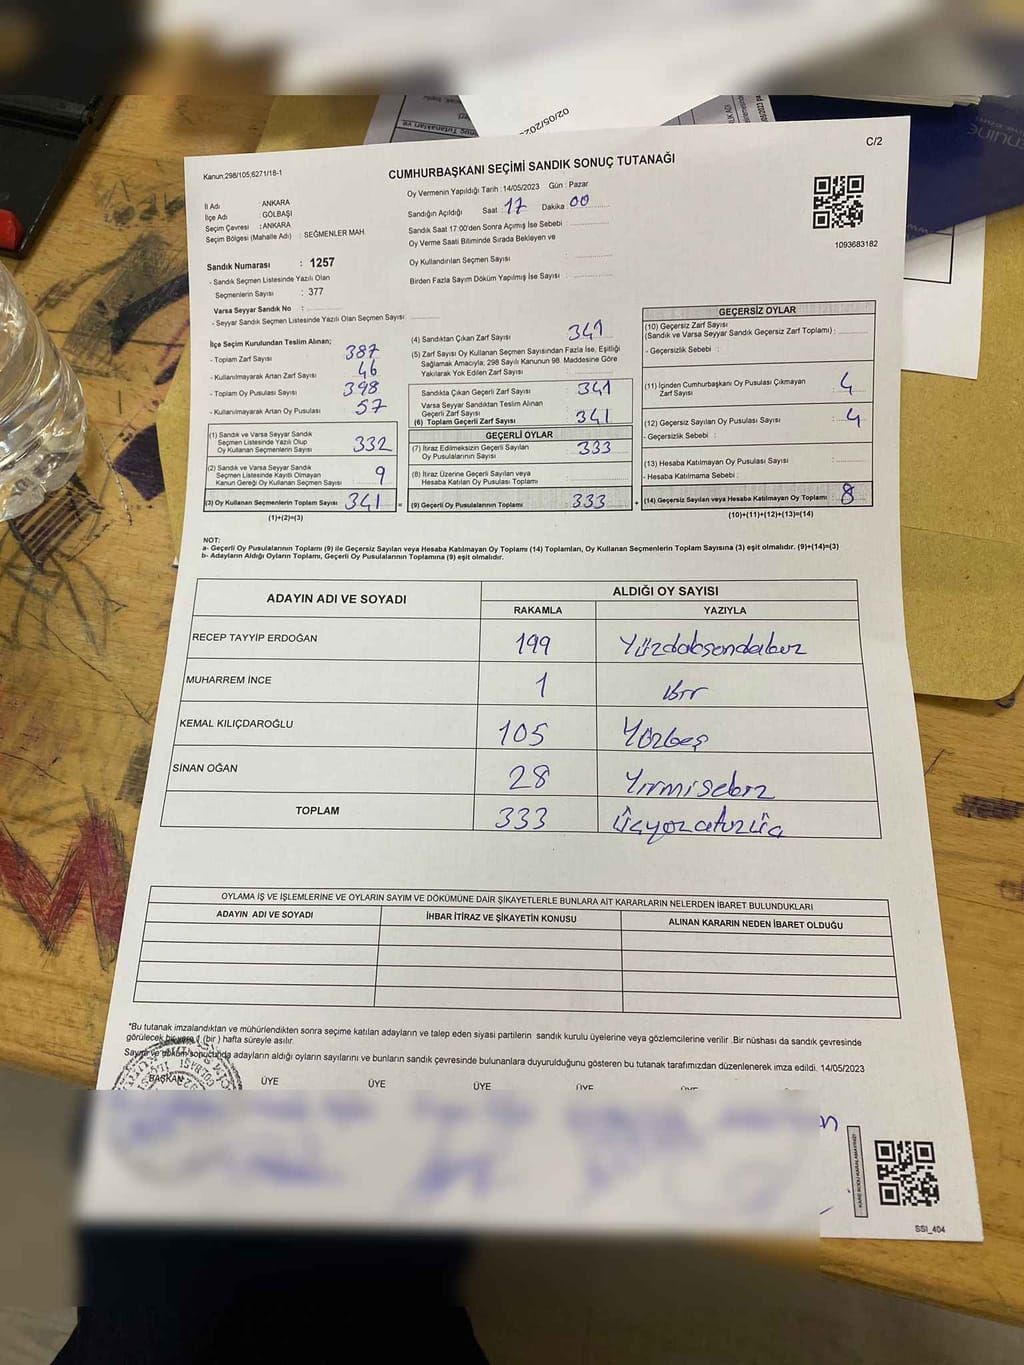 02/05/202
C/2
Kanun,298/105,6271/18-1
CUMHURBAŞKANI SEÇİMİ SANDIK SONUÇ TUTANAĞI
Oy Vermenin Yapıldığı Tarih : 14/05/2023 Gün : Pazar
İl Adı : ANKARA
İlçe Adı : GÖLBAŞI
Seçim Çevresi : ANKARA
Seçim Bölgesi (Mahalle Adı) : SEĞMENLER MAH.
Sandığın Açıldığı Saat : 17 Dakika : 00
Sandık Saat 17:00'den Sonra Açılmış İse Sebebi :
Oy Verme Saati Bitiminde Sırada Bekleyen ve
Oy Kullandırılan Seçmen Sayısı :
Birden Fazla Sayım Döküm Yapılmış İse Sayısı :
1093683182
Sandık Numarası : 1257
- Sandık Seçmen Listesinde Yazılı Olan
Seçmenlerin Sayısı : 377
Varsa Seyyar Sandık No :
- Seyyar Sandık Seçmen Listesinde Yazılı Olan Seçmen Sayısı:
İlçe Seçim Kurulundan Teslim Alınan;
- Toplam Zarf Sayısı 387
- Kullanılmayarak Artan Zarf Sayısı 46
- Toplam Oy Pusulası Sayısı 398
- Kullanılmayarak Artan Oy Pusulası 57
(1) Sandık ve Varsa Seyyar Sandık
Seçmen Listesinde Yazılı Olup
Oy Kullanan Seçmenlerin Sayısı 332
(2) Sandık ve Varsa Seyyar Sandık
Seçmen Listesinde Kayıtlı Olmayan
Kanun Gereği Oy Kullanan Seçmen Sayısı 9
(3) Oy Kullanan Seçmenlerin Toplam Sayısı 341 =
(1)+(2)=(3)
(4) Sandıktan Çıkan Zarf Sayısı 341
(5) Zarf Sayısı Oy Kullanan Seçmen Sayısından Fazla İse, Eşitliği
Sağlamak Amacıyla; 298 Sayılı Kanunun 98. Maddesine Göre
Yakılarak Yok Edilen Zarf Sayısı :
Sandıkta Çıkan Geçerli Zarf Sayısı : 341
Varsa Seyyar Sandıktan Teslim Alınan
Geçerli Zarf Sayısı
(6) Toplam Geçerli Zarf Sayısı : 341
GEÇERLİ OYLAR
(7) İtiraz Edilmeksizin Geçerli Sayılan
Oy Pusulalarının Sayısı : 333
(8) İtiraz Üzerine Geçerli Sayılan veya
Hesaba Katılan Oy Pusulası Toplamı :
(9) Geçerli Oy Pusulalarının Toplamı : 333 +
GEÇERSİZ OYLAR
(10) Geçersiz Zarf Sayısı
(Sandık ve Varsa Seyyar Sandık Geçersiz Zarf Toplamı) :
- Geçersizlik Sebebi :
(11) İçinden Cumhurbaşkanı Oy Pusulası Çıkmayan
Zarf Sayısı : 4
(12) Geçersiz Sayılan Oy Pusulası Sayısı : 4
- Geçersizlik Sebebi :
(13) Hesaba Katılmayan Oy Pusulası Sayısı :
- Hesaba Katılmama Sebebi :
(14) Geçersiz Sayılan veya Hesaba Katılmayan Oy Toplamı : 8
(10)+(11)+(12)+(13)=(14)
NOT:
a- Geçerli Oy Pusulalarının Toplamı (9) ile Geçersiz Sayılan veya Hesaba Katılmayan Oy Toplamı (14) Toplamları, Oy Kullanan Seçmenlerin Toplam Sayısına (3) eşit olmalıdır. (9)+(14)=(3)
b- Adayların Aldığı Oyların Toplamı, Geçerli Oy Pusulalarının Toplamına (9) eşit olmalıdır.
ADAYIN ADI VE SOYADI
ALDIĞI OY SAYISI
RAKAMLA YAZIYLA
RECEP TAYYİP ERDOĞAN 199 Yüzdoksandokuz
MUHARREM İNCE 1 bir
KEMAL KILIÇDAROĞLU 105 Yüzbeş
SİNAN OĞAN 28 Yirmisekiz
TOPLAM 333 Üçyüzotuzüç
OYLAMA İŞ VE İŞLEMLERİNE VE OYLARIN SAYIM VE DÖKÜMÜNE DAİR ŞİKAYETLERLE BUNLARA AİT KARARLARIN NELERDEN İBARET BULUNDUKLARI
ADAYIN ADI VE SOYADI İHBAR İTİRAZ VE ŞİKAYETİN KONUSU ALINAN KARARIN NEDEN İBARET OLDUĞU
*Bu tutanak imzalandıktan ve mühürlendikten sonra seçime katılan adayların ve talep eden siyasi partilerin sandık kurulu üyelerine veya gözlemcilerine verilir .Bir nüshası da sandık çevresinde
görülecek bir yere 1 (bir ) hafta süreyle asılır.
Sayım ve döküm sonucunda adayların aldığı oyların sayılarını ve bunların sandık çevresinde bulunanlara duyurulduğunu gösteren bu tutanak tarafımızdan düzenlenerek imza edildi. 14/05/2023
BAŞKAN ÜYE ÜYE ÜYE ÜYE ÜYE
SSI_404